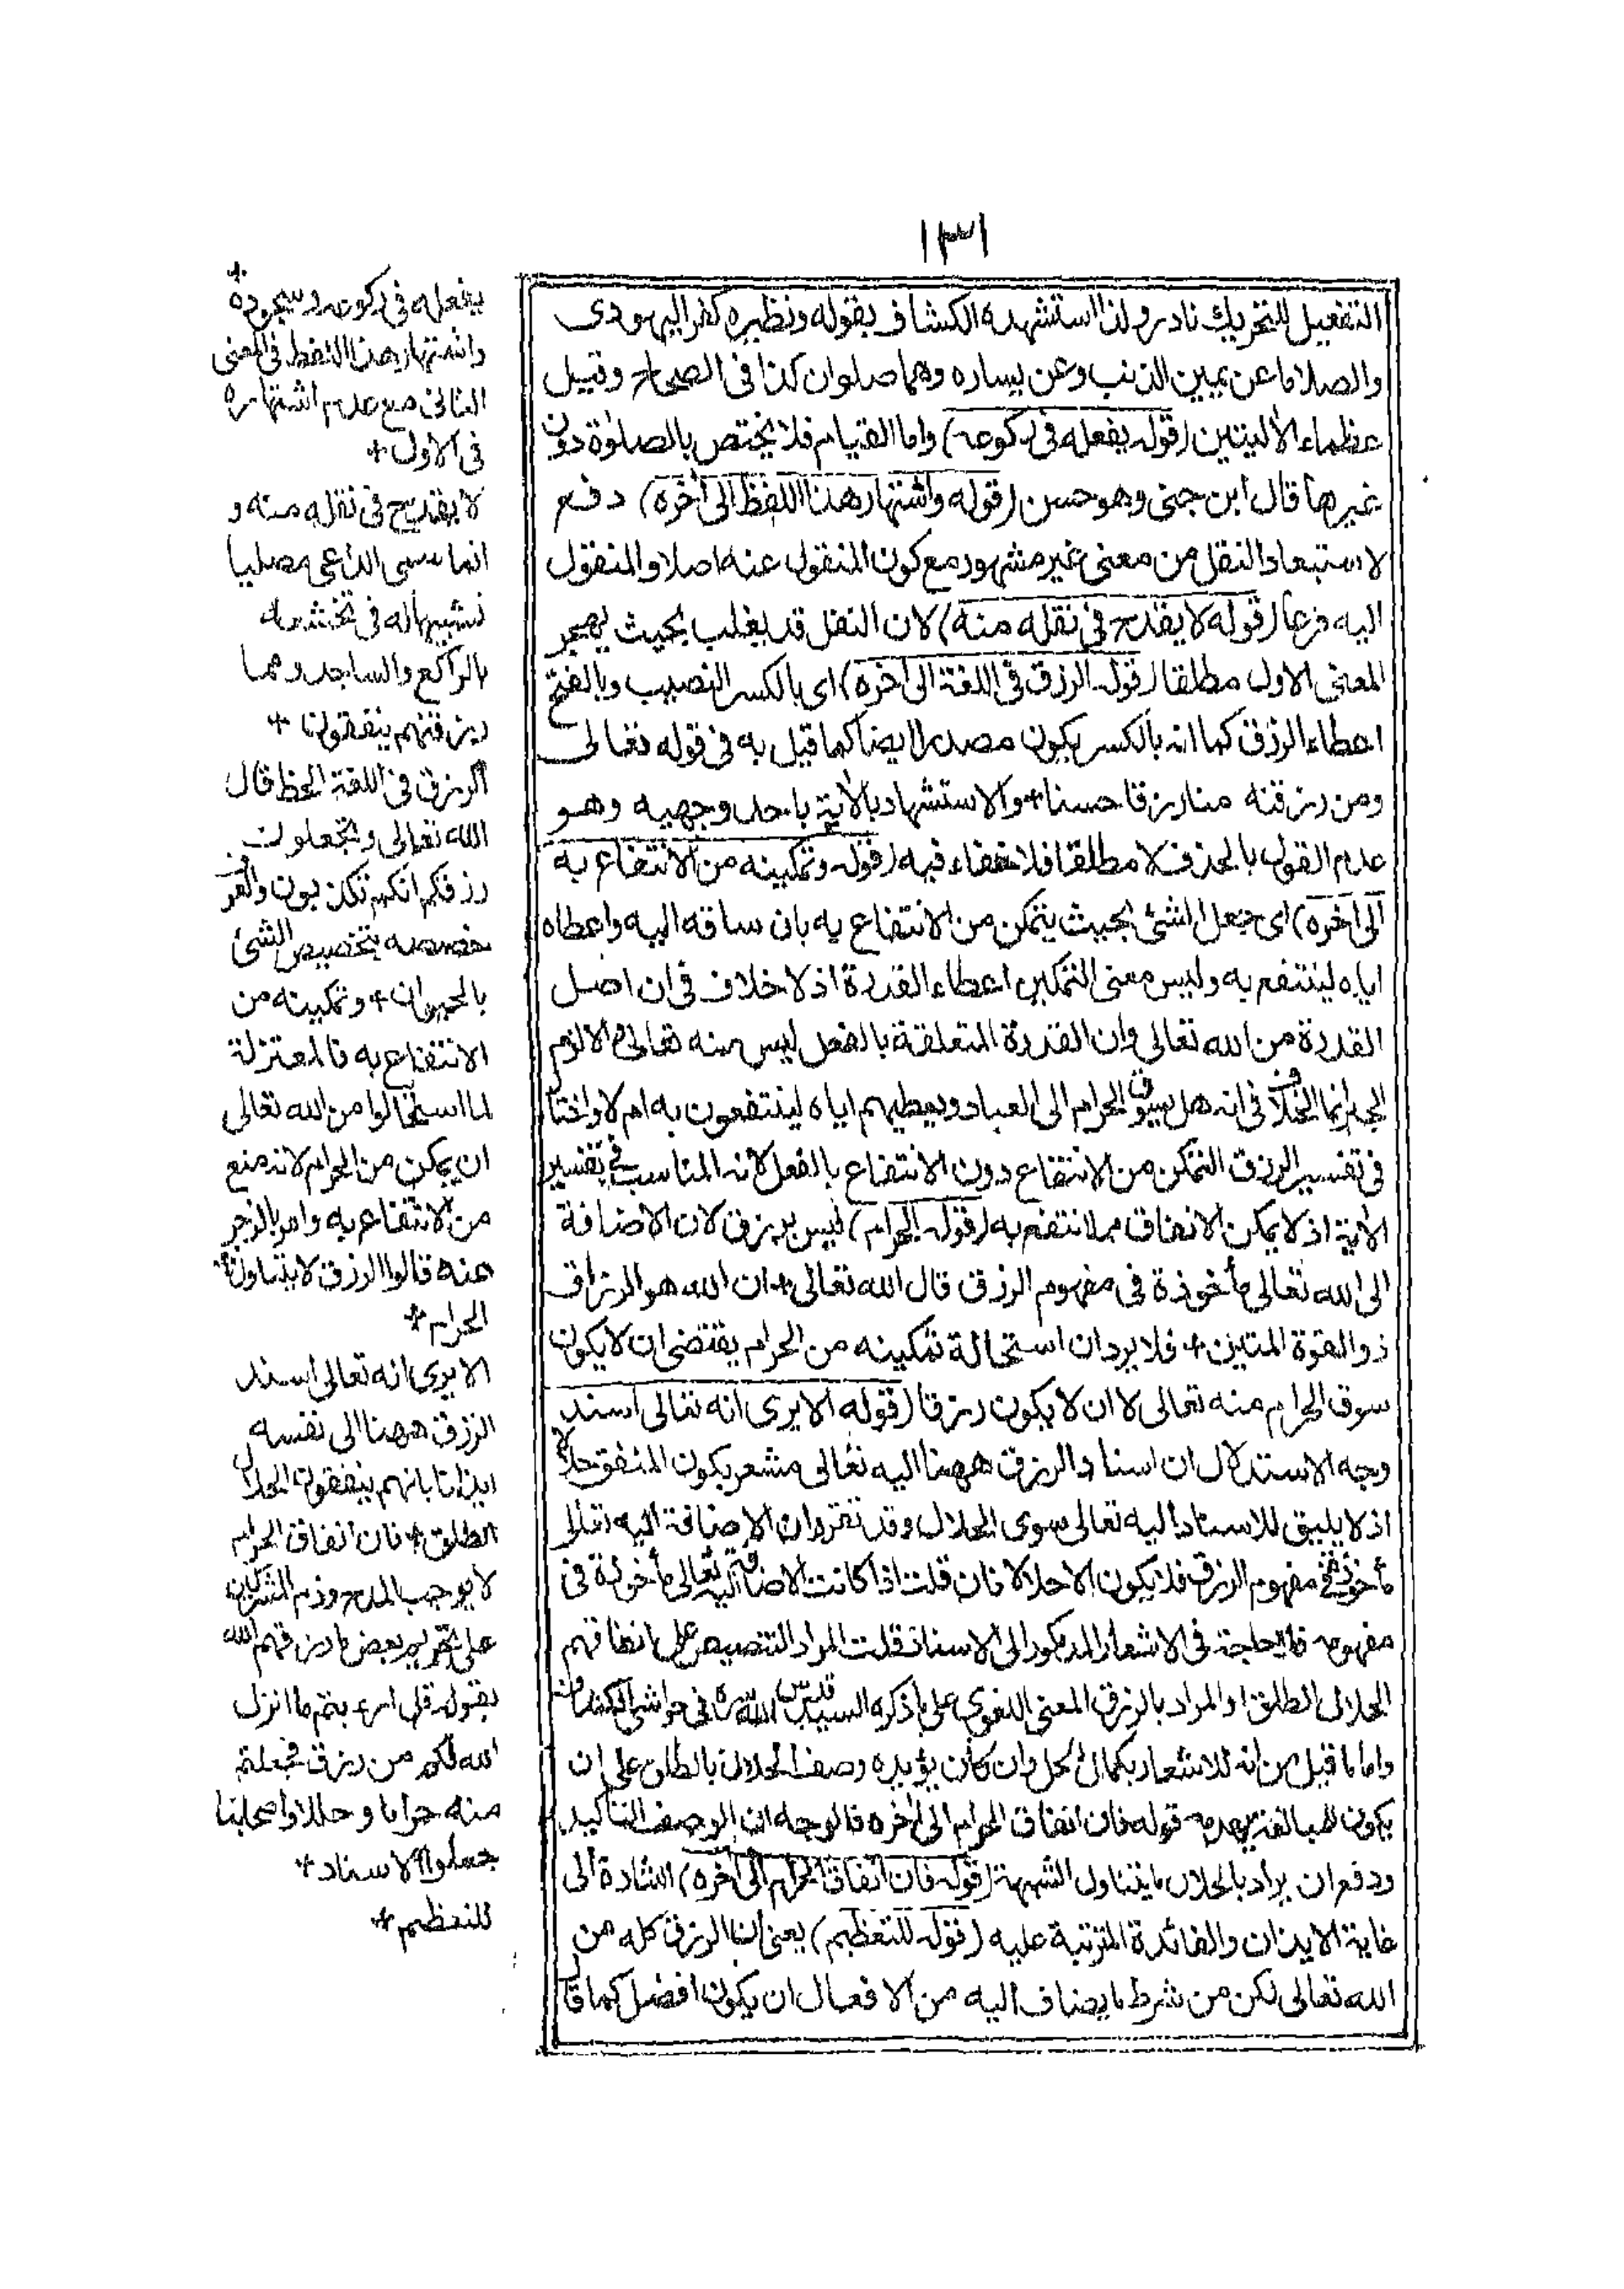 ١٣١
التفعيل للتحريك نادر ولذا استشهد له الكشاف بقوله ونظيره كفر اليهودى
والصلا ما عن يمين الذنب وعن يساره وهما صلوان كذا فى الصحاح وقيل
عظماء الأليتين (قوله يفعله فى ركوعه) واما القيام فلا يختص بالصلوة دون
غيرها قال ابن جنى وهو حسن (قوله واشتهار هذا اللفظ الى أخره) دفع
لاستبعاد النقل من معنى غير مشهور مع كون المنقول عنه اصلا والمنقول
اليه فرعا (قوله لا يقدح فى نقله منه) لان النقل قد يغلب بحيث يهجر
المعنى الاول مطلقا (قوله الرزق فى اللغة الى أخره) اى بالكسر النصيب وبالفتح
اعطاء الرزق كما انه بالكسر يكون مصدرا ايضا كما قيل به فى قوله تعالى
ومن رزقنه منا رزقا حسنا+ والاستشهاد بالأية باحد وجهيه وهو
عدم القول بالحذف لا مطلقا فلا خفاء فيه (قوله وتمكينه من الانتفاع به
الى أخره) اى جعل الشئ بحيث يتمكن من الانتفاع به بان ساقه اليه واعطاه
اياه لينتفع به وليس معنى التمكين اعطاء القدرة اذ لا خلاف فى ان اصل
القدرة من الله تعالى وان القدرة المتعلقة بالفعل ليس منه تعالى والا لزم
الجبر انما الخلاف فى انه هل يسوق الحرام الى العباد ويعطيهم اياه لينتفعون به ام لا واختار
فى تفسير الرزق التمكن من الانتفاع دون الانتفاع بالفعل لانه المناسب فى تفسير
الأية اذ لا يمكن الانفاق مما انتفع به (قوله الحرام) ليس برزق لان الاضافة
الى الله تعالى مأخوذة فى مفهوم الرزق قال الله تعالى+ ان الله هو الرزاق
ذو القوة المتين+ فلا يرد ان استحالة تمكينه من الحرام يقتضى ان لا يكون
سوق الحرام منه تعالى لا ان لا يكون رزقا (قوله الا يرى انه تعالى اسند
وجه الاستدلال ان اسناد الرزق ههنا اليه تعالى مشعر بكون المنفق حلالا
اذ لا يليق للاسناد اليه تعالى سوى الحلال وقد تقرر ان الاضافة اليه تعالى
مأخوذة فى مفهوم الرزق فلا يكون الا حلالا فان قلت اذا كانت الاضافة اليه تعالى مأخوذة فى
مفهومه فاى حاجة فى الاشعار المذكور الى الاسناد قلت المراد التنصيص على انفاقهم
الحلال الطلق او المراد بالرزق المعنى اللغوى على ما ذكره السيد قدس الله سره فى حواشى الكشاف
واما ما قيل من انه للاشعار بكمال الحل وان كان يؤيده وصف الحلال بالطلق على ان
يكون للمبالغة قوله فان انفاق الحرام الى أخره فالوجه ان الوصف للتأكيد
ودفع ان يراد بالحلال ما يتناول الشبهة (قوله فان انفاق الحرام الى أخره) اشارة الى
غاية الايذان والفائدة المترتبة عليه (قوله للتعظيم) يعنى ان الرزق كله من
الله تعالى لكن من شرط ما يضاف اليه من الافعال ان يكون افضل كما قال
يفعله فى ركوعه وسجوده +
واشتهار هذا اللفظ فى المعنى
الثانى مع عدم اشتهاره
فى الاول+
لا يقدح فى نقله منه و
انما سمى الداعى مصليا
تشبيها له فى تخشعه
بالراكع والساجد ومما
رزقنهم ينفقون +
الرزق فى اللغة الحظ قال
الله تعالى وتجعلون
رزقكم انكم تكذبون والعرف
خصصه بتخصيص الشئ
بالحيوان+ وتمكينه من
الانتفاع به فالمعتزلة
لما استحالوا من الله تعالى
ان يمكن من الحرام لانه منع
من الانتفاع به وامر بالزجر
عنه قالوا الرزق لا يتناول
الحرام+
الا يرى انه تعالى اسند
الرزق ههنا الى نفسه
ايذانا بانهم ينفقون الحلال
الطلق+ فان انفاق الحرام
لا يوجب المدح وذم المشركين
على تحريم بعض ما رزقهم الله
بقوله قل ارءيتم ما انزل
الله لكم من رزق فجعلتم
منه حراما وحللا واصحابنا
جعلوا الاسناد+
للتعظيم+